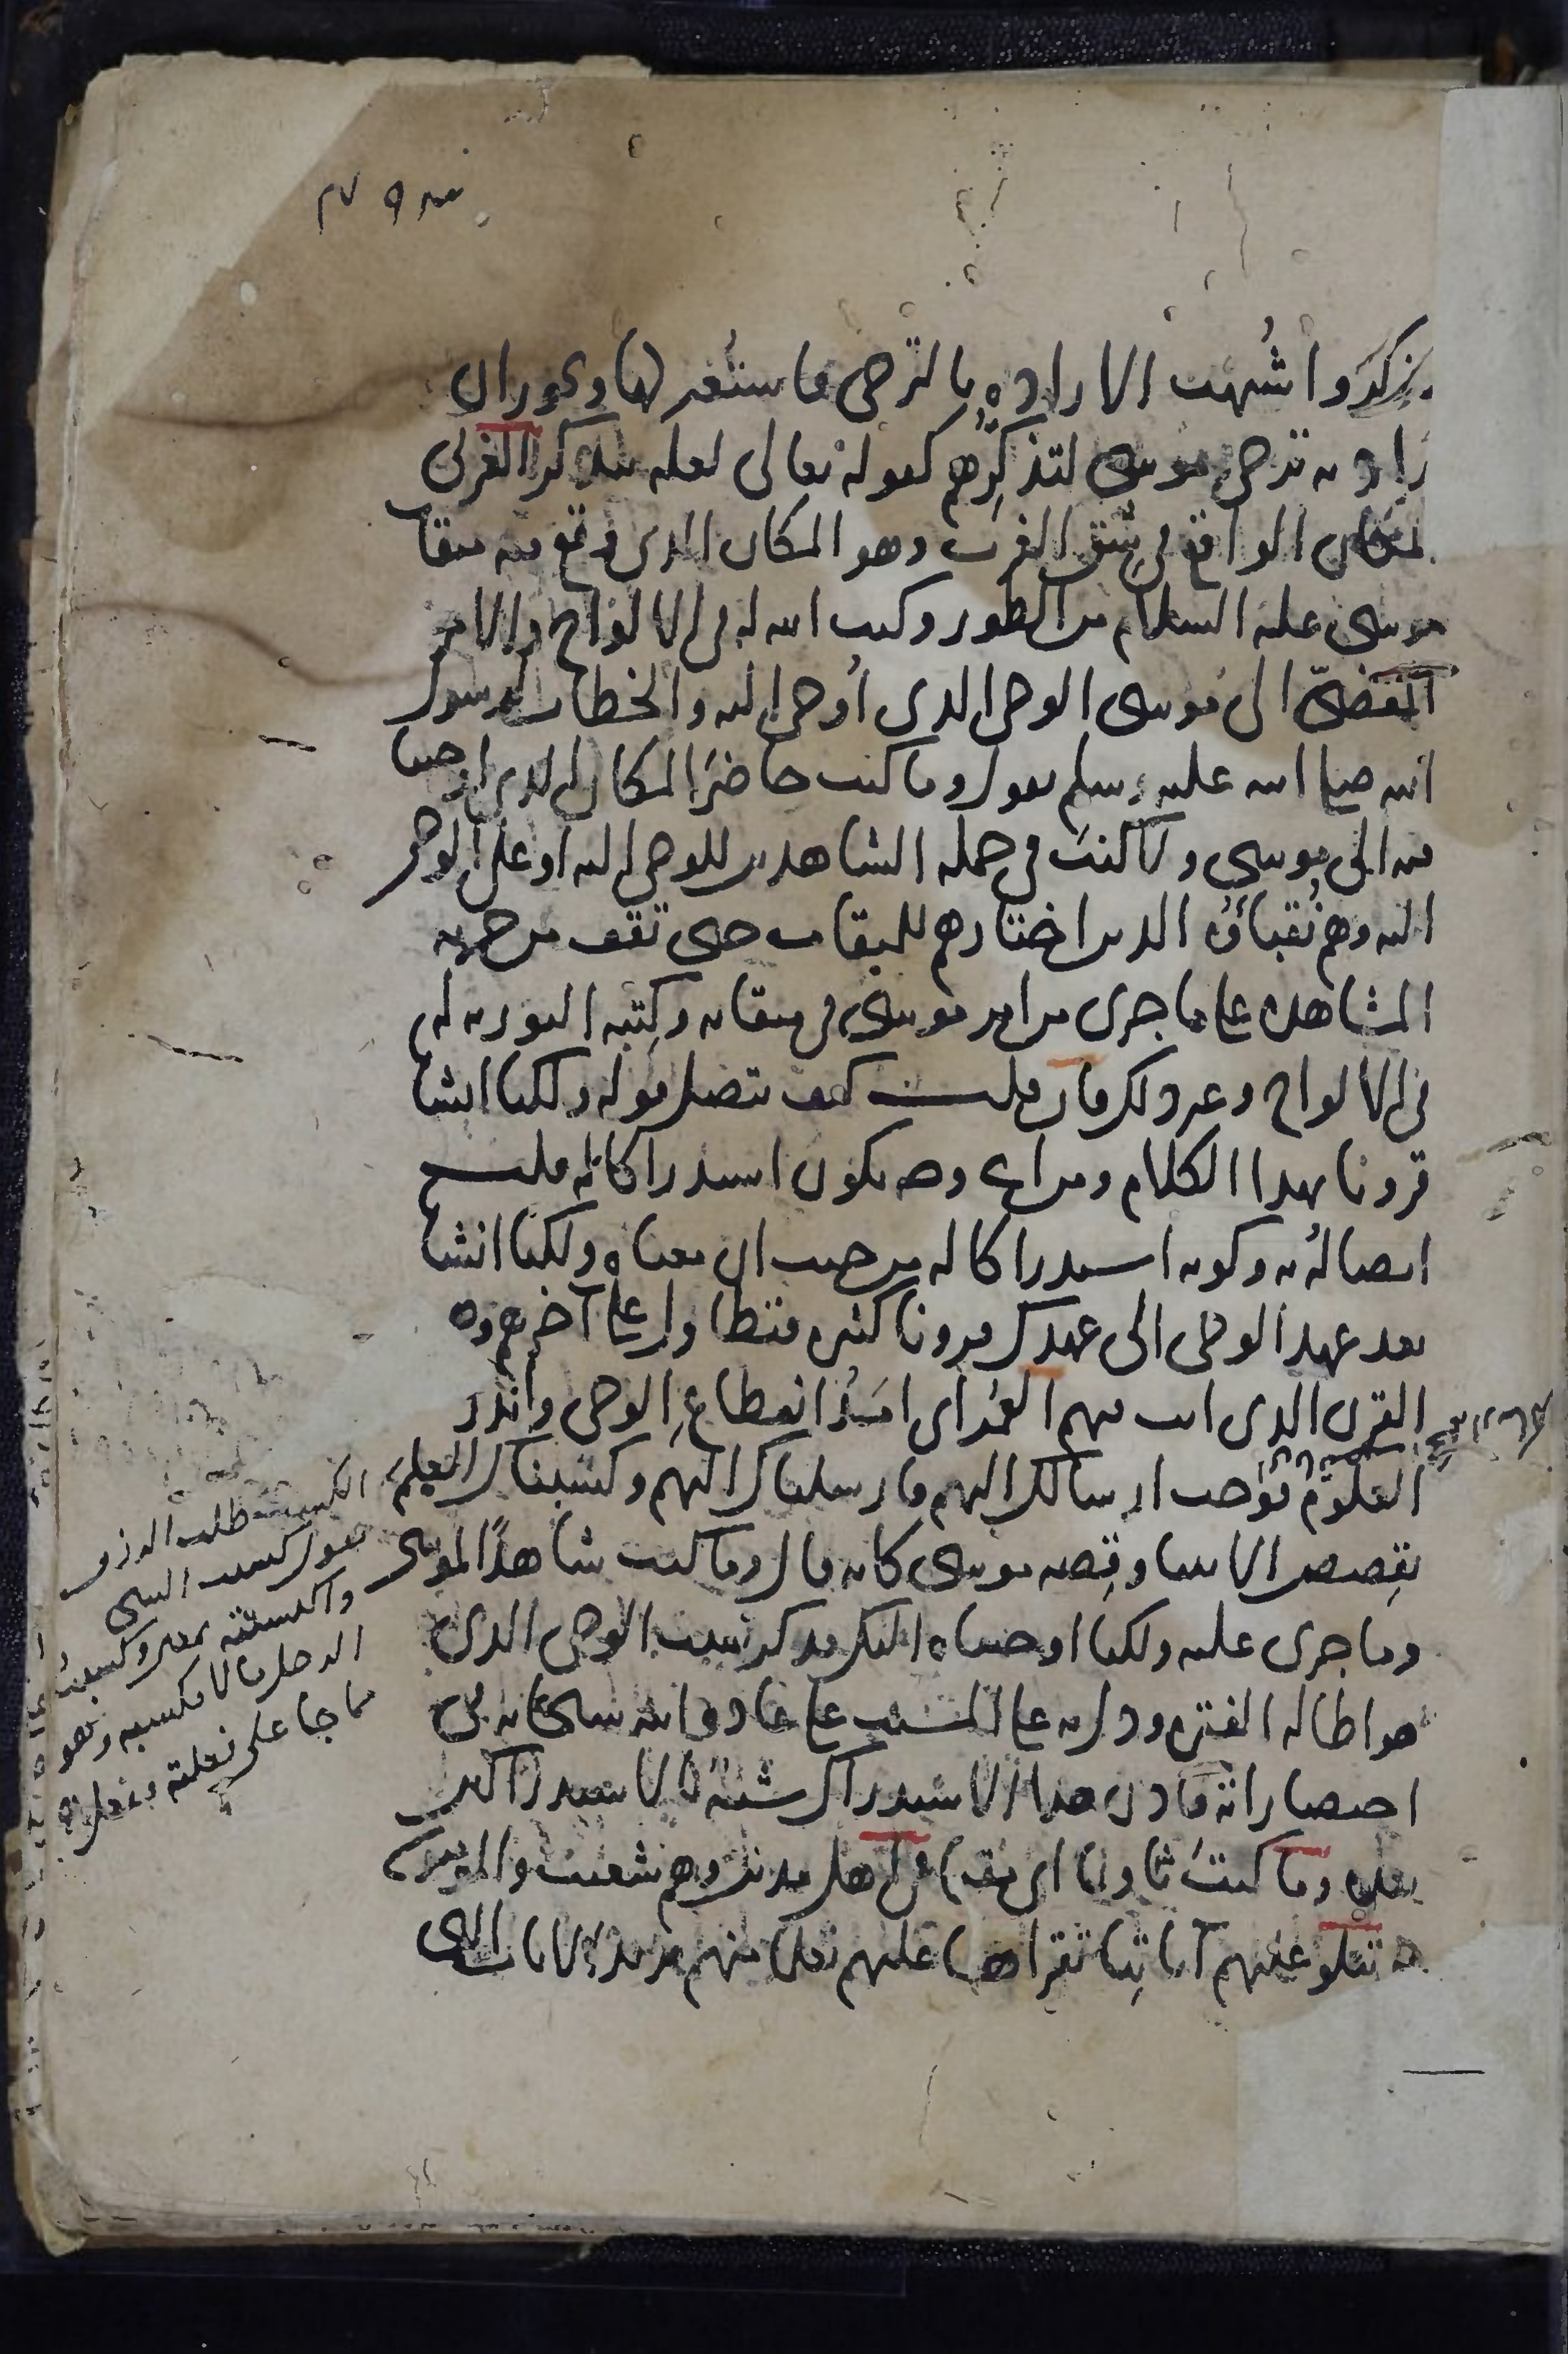 يذكروا شُبهت الارادة بالترجى فاستعير لها ويجوز ان
يراد به ترجى موسى لتذكرهم كقوله تعالى لعله يتذكر الغربى
المكان الواقع فى شق الغرب وهو المكان الذى وقع فيه ميقات
موسى عليه السلام من الطور وكتب الله له فى الالواح والامر
المقضىّ الى موسى الوحى الذى أوحى اليه والخطاب لرسول
الله صلى الله عليه وسلم يقول وما كنت حاضرَا المكان الذى اوحينا
فيه الى موسى ولا كنتَ فى جملة الشاهدين للوحى اليه او على الوحى
اليه وهم نُقباؤُه الذين اختارهم للميقات حتى تقف من جهة
المشاهدة على ما جرى من امر موسى فى ميقاته وكِتبه التورية له
فى الالواح وغير ذلك فان قلت كيف يتصل قوله ولكنا انشانا
قرونا بهذا الكلام ومن اى وجه يكون استدراكا له قلت
اتصالُه به وكونه استدراكا له من حيث ان معناه ولكنا انشانا
بعد عهد الوحى الى عهدك قرونا كثيرة فتطاول على آخرهم وهو
القرن الذى انت فيهم العُمُر اى امَدُ انقطاعِ الوحى واندرست
العلومُ فوجب ارسالك اليهم فارسلناك اليهم وكسبناك العلمَ
بقِصص الانبيا وقِصة موسى كانه قال وما كنت شاهدًا لموسى
وما جرى عليه ولكنا اوحيناه اليك فذكر سبب الوحى الذى
هو اطالة الفترة ودل به على المسبب على عادة الله سبحانه فى
اختصاراته فاذن هذا الاستدراك شبيهُ الاستدراكين
بعده وما كنتَ ثاويا اى مقيما فى اهل مدين وهم شعيب والمؤمنون
به تتلو عليهم آياتِنا تقراها عليهم تعلما منهم يريد الايات التى
الكسب طلب الرزق
يقول كسبت الشى
واكتسبته بمعنى وكسبتُ
الرجل مالا فكسبه وهو
مما جا على فعلته ففعل